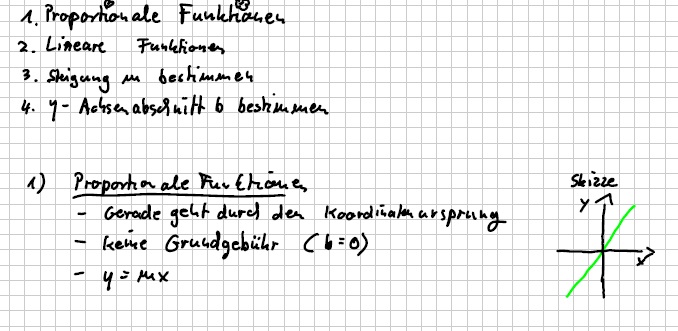 1. Proportionale Funktionen
2. Lineare Funktionen
3. Steigung m bestimmen
4. y-Achsenabschnitt b bestimmen
1) Proportionale Funktionen
- Gerade geht durch den Koordinatenursprung
- keine Grundgebühr (b=0)
- y = mx
Skizze
y
x